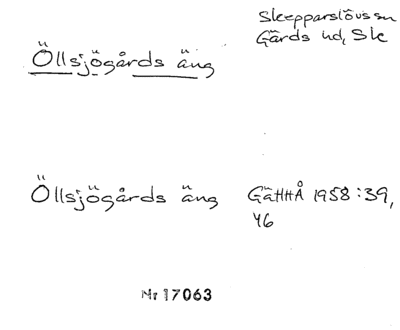 Skepparslövs sn
Gärds hd, Sk
Öllsjögårds äng
Öllsjögårds äng GäHHÅ 1958:39,
46
Nr 17063